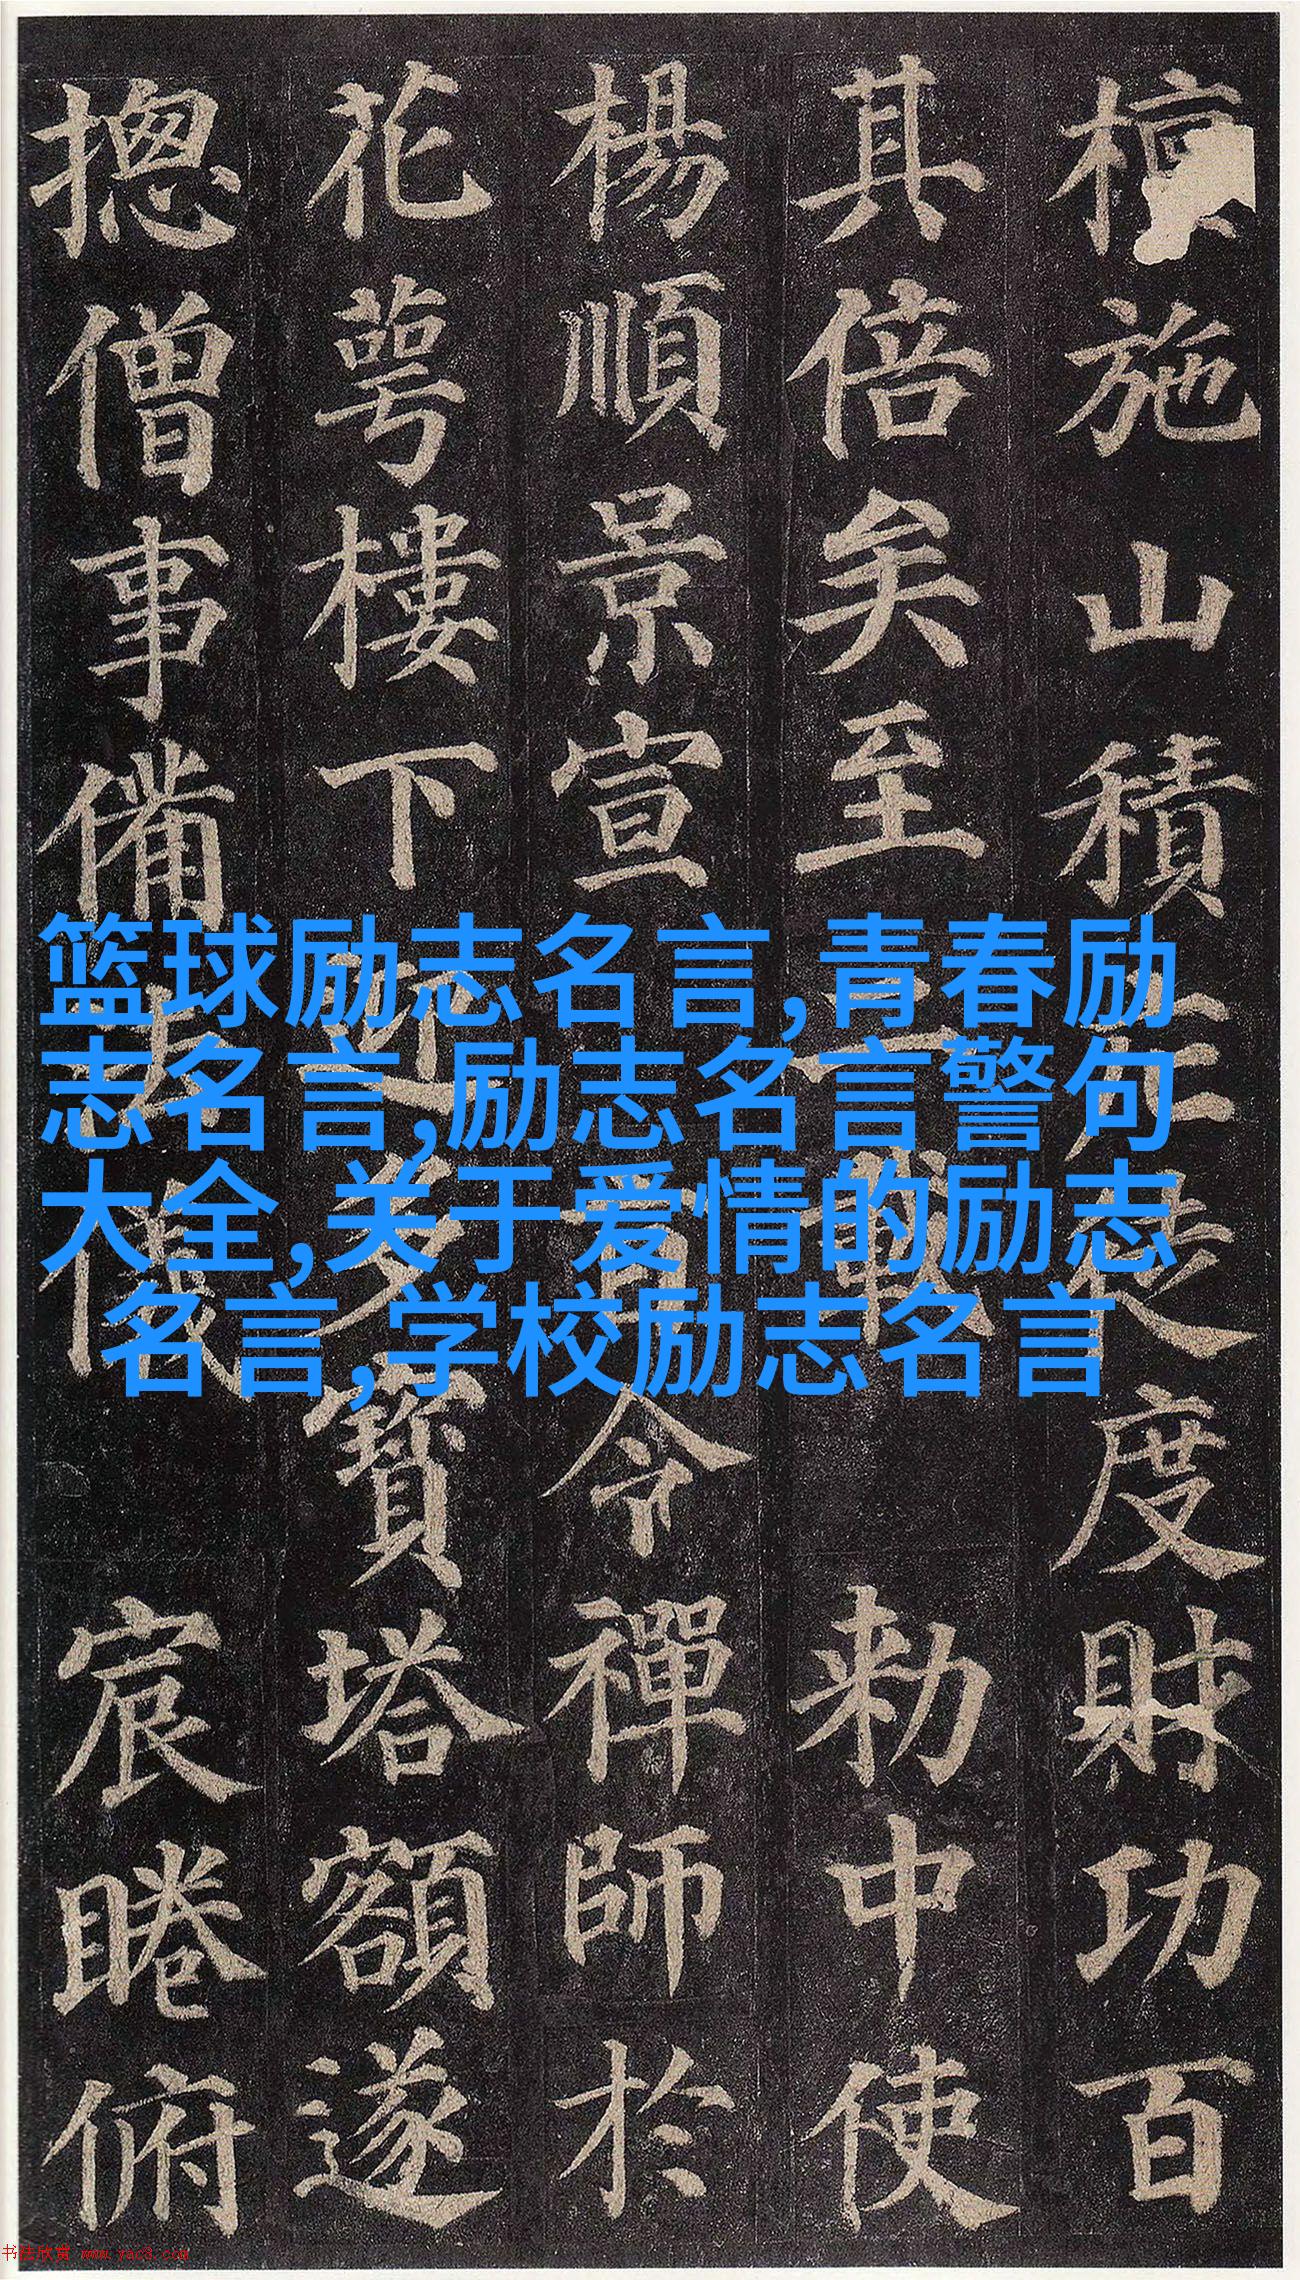 檀施山積庄徒度財功百
其倍矣至二載 敕中使
楊順景宣旨令禪師於
花萼樓下迎多寶塔額遂
摠僧事備法儀 宸睠俯
篮球励志名言,青春励
志名言,励志名言警句
大全,关于爱情的励志
名言,学校励志名言
书法欣赏 www.yac3.com